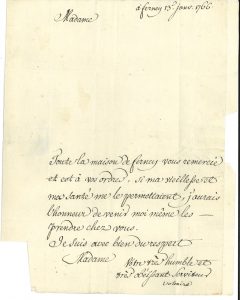 à ferney 15e janv. 1766
Madame
Toute la maison de ferney vous remercie
et est à vos ordres. si ma vieillesse et
ma santé me le permettaient, j'aurais
l'honneur de venir moi même les
prendre chez vous.
Je suis avec bien du respect
Madame
Votre très humble et
très obéissant serviteur
voltaire